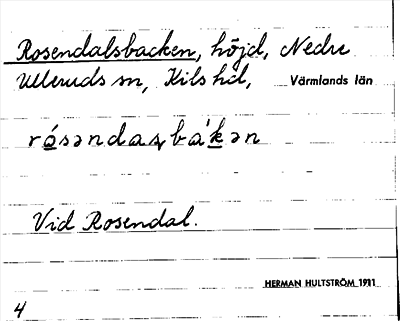 Rosendalsbacken, höjd, Nedre
Ulleruds sn, Kils hd, Värmlands län
Vid Rosendal.
HERMAN HULTSTRÖM 1911
4